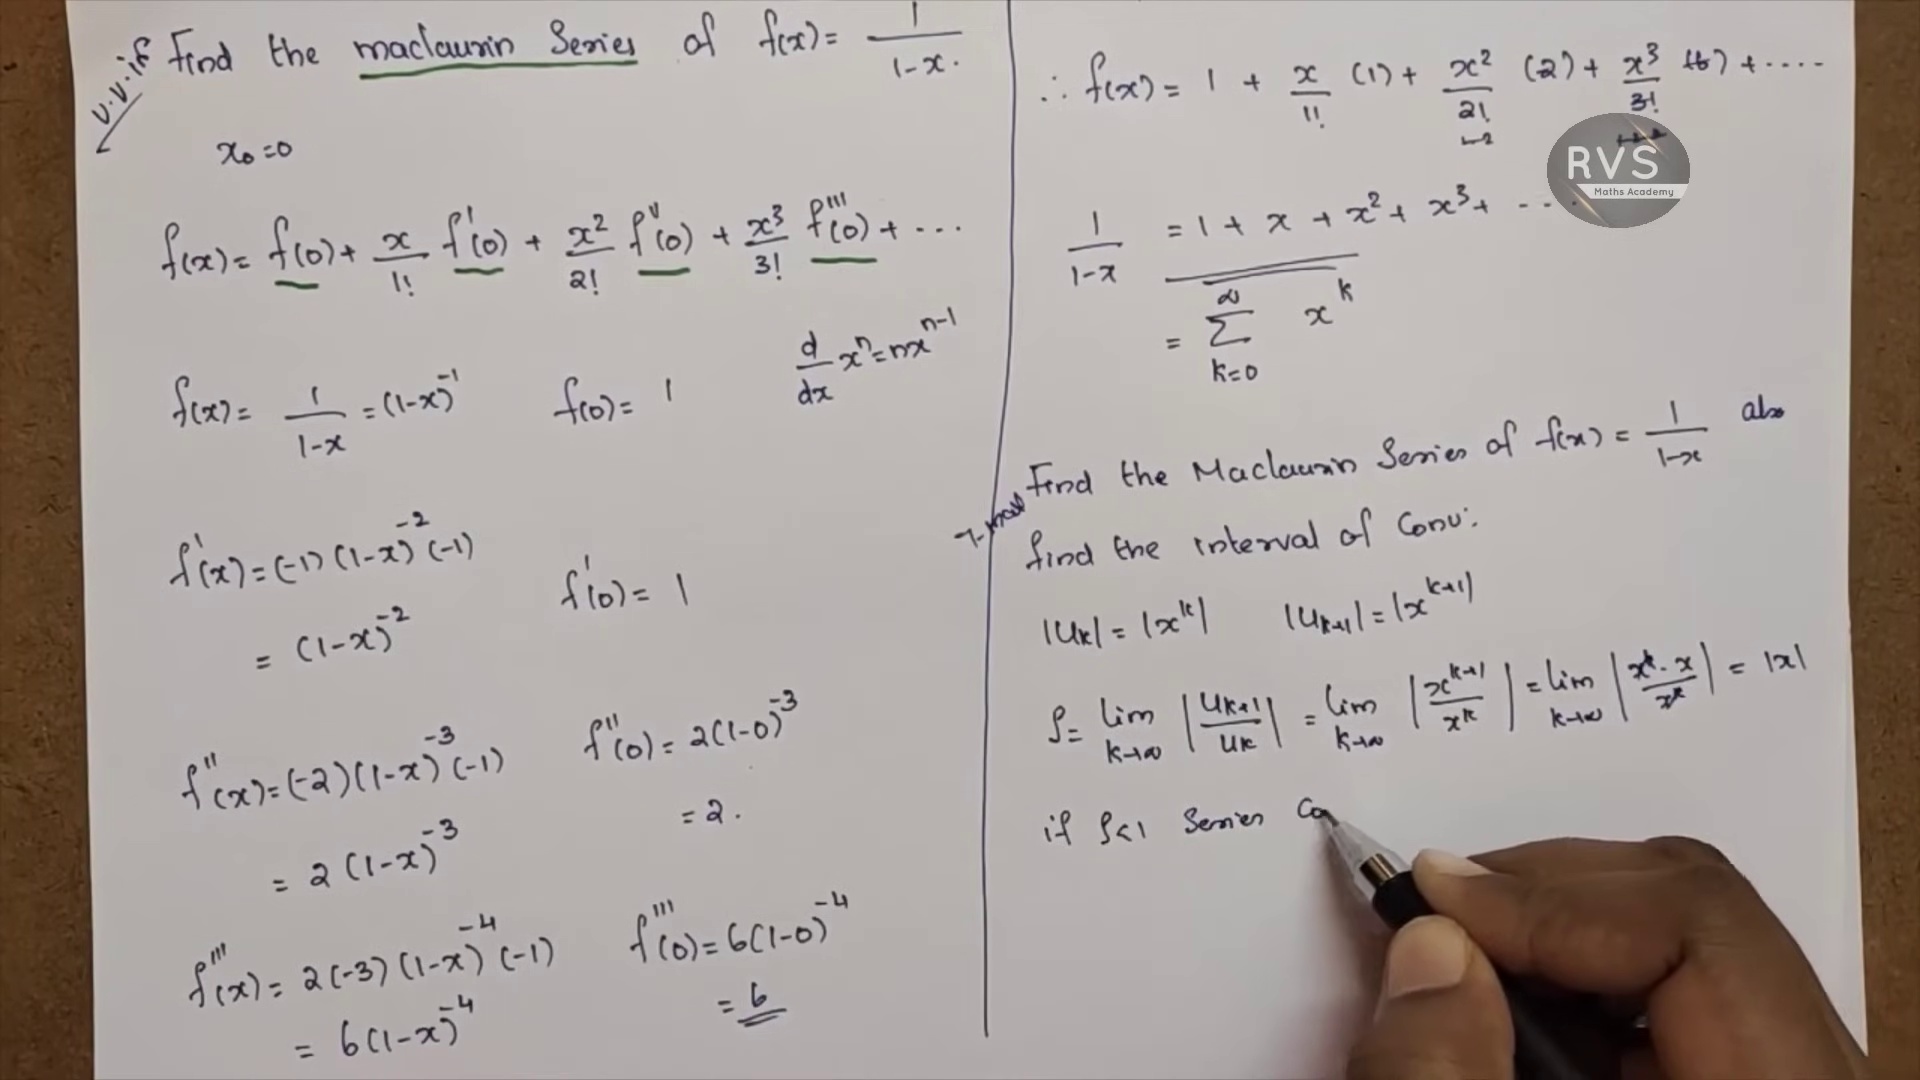 v.v.if
Find the maclaurin Series of f(x) = 1/(1-x).
x₀=0
f(x) = f(0) + x/1! f'(0) + x²/2! f''(0) + x³/3! f'''(0) + ...
d/dx xⁿ = nxⁿ⁻¹
f(x) = 1/(1-x) = (1-x)⁻¹ f(0) = 1
f'(x) = (-1)(1-x)⁻²(-1) f'(0) = 1
= (1-x)⁻²
f''(x) = (-2)(1-x)⁻³(-1) f''(0) = 2(1-0)⁻³
= 2(1-x)⁻³ = 2.
f'''(x) = 2(-3)(1-x)⁻⁴(-1) f'''(0) = 6(1-0)⁻⁴
= 6(1-x)⁻⁴ = 6
∴ f(x) = 1 + x/1! (1) + x²/2! (2) + x³/3! (6) + ....
1·2
RVS
Maths Academy
1/(1-x) = 1 + x + x² + x³ + ....
= ∑_{k=0}^{∞} x^k
Find the Maclaurin Series of f(x) = 1/(1-x) also
find the interval of Conv:
|u_k| = |x^k| |u_{k+1}| = |x^{k+1}|
ρ = lim_{k→∞} |u_{k+1}/u_k| = lim_{k→∞} |x^{k+1}/x^k| = lim_{k→∞} |x^k·x/x^k| = |x|
if ρ<1 Series Co